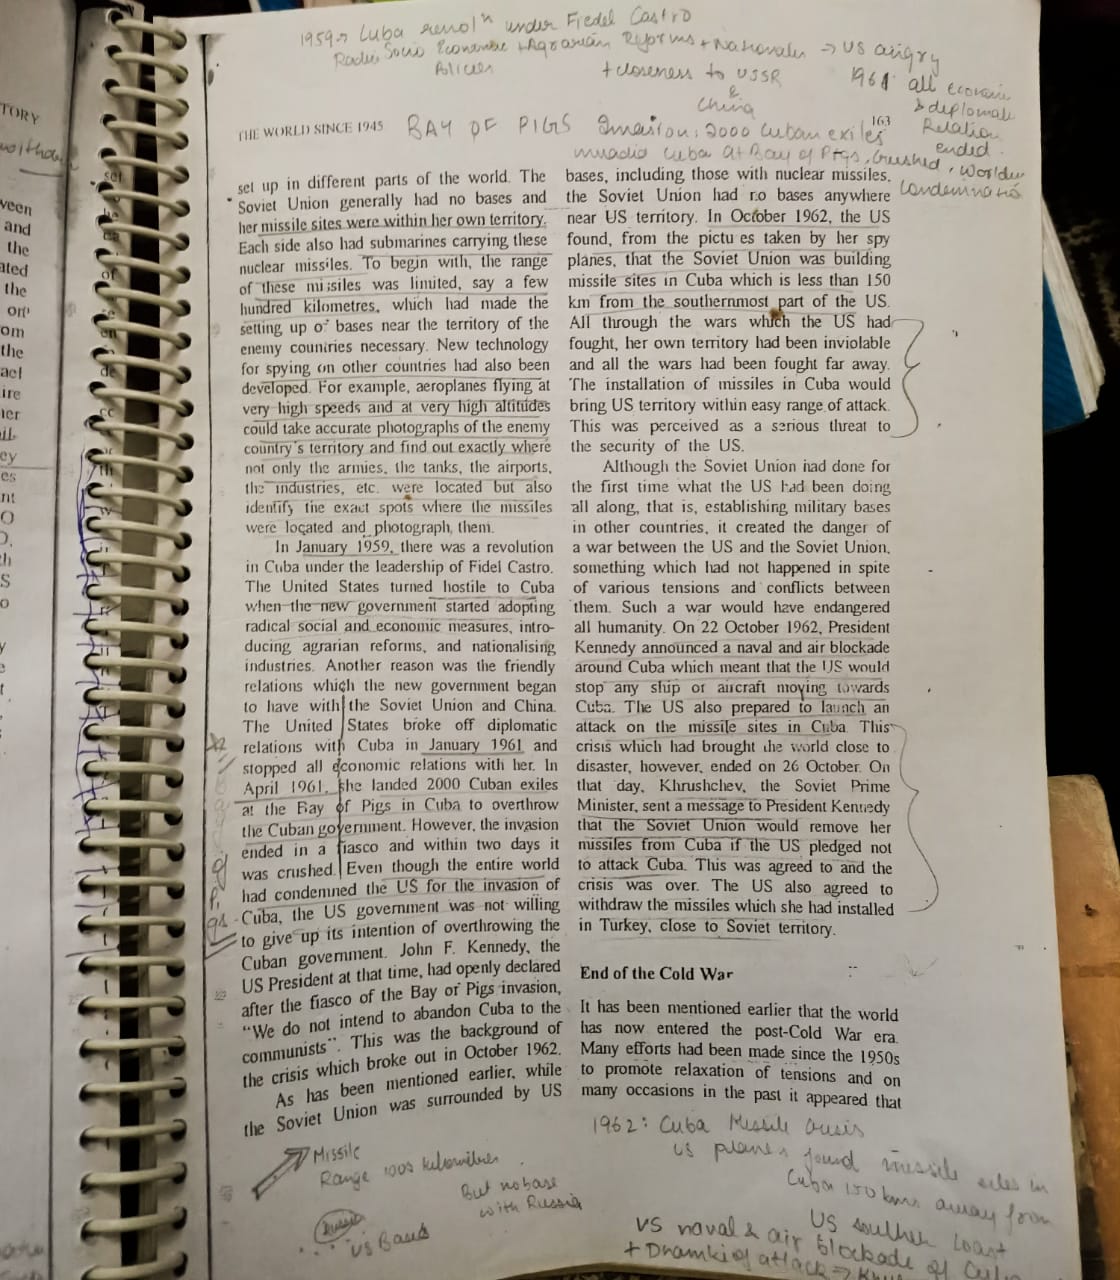 1959 → Cuba revolⁿ under Fiedel Castro
Radic Socio Economic + Agrarian Reforms + Nationales → US angry
Policies + closeness to USSR
& China
1961 all economic
& diplomati
Relation
ended
163
THE WORLD SINCE 1945
BAY OF PIGS Invasion: 2000 Cuban exiles
invadia Cuba at Bay of Pigs, Crushed, Worlder
Condemnatio
set up in different parts of the world. The
Soviet Union generally had no bases and
her missile sites were within her own territory.
Each side also had submarines carrying these
nuclear missiles. To begin with, the range
of these missiles was limited, say a few
hundred kilometres, which had made the
setting up of bases near the territory of the
enemy countries necessary. New technology
for spying on other countries had also been
developed. For example, aeroplanes flying at
very high speeds and at very high altitudes
could take accurate photographs of the enemy
country's territory and find out exactly where
not only the armies, the tanks, the airports,
the industries, etc. were located but also
identify the exact spots where the missiles
were located and photograph them.
In January 1959, there was a revolution
in Cuba under the leadership of Fidel Castro.
The United States turned hostile to Cuba
when the new government started adopting
radical social and economic measures, intro-
ducing agrarian reforms, and nationalising
industries. Another reason was the friendly
relations which the new government began
to have with the Soviet Union and China.
The United States broke off diplomatic
relations with Cuba in January 1961 and
stopped all economic relations with her. In
April 1961, she landed 2000 Cuban exiles
at the Bay of Pigs in Cuba to overthrow
the Cuban government. However, the invasion
ended in a fiasco and within two days it
was crushed. Even though the entire world
had condemned the US for the invasion of
Cuba, the US government was not willing
to give up its intention of overthrowing the
Cuban government. John F. Kennedy, the
US President at that time, had openly declared
after the fiasco of the Bay of Pigs invasion,
"We do not intend to abandon Cuba to the
communists". This was the background of
the crisis which broke out in October 1962.
As has been mentioned earlier, while
the Soviet Union was surrounded by US
bases, including those with nuclear missiles,
the Soviet Union had no bases anywhere
near US territory. In October 1962, the US
found, from the pictures taken by her spy
planes, that the Soviet Union was building
missile sites in Cuba which is less than 150
km from the southernmost part of the US.
All through the wars which the US had
fought, her own territory had been inviolable
and all the wars had been fought far away.
The installation of missiles in Cuba would
bring US territory within easy range of attack.
This was perceived as a serious threat to
the security of the US.
Although the Soviet Union had done for
the first time what the US had been doing
all along, that is, establishing military bases
in other countries, it created the danger of
a war between the US and the Soviet Union,
something which had not happened in spite
of various tensions and conflicts between
them. Such a war would have endangered
all humanity. On 22 October 1962, President
Kennedy announced a naval and air blockade
around Cuba which meant that the US would
stop any ship or aircraft moving towards
Cuba. The US also prepared to launch an
attack on the missile sites in Cuba. This
crisis which had brought the world close to
disaster, however, ended on 26 October. On
that day, Khrushchev, the Soviet Prime
Minister, sent a message to President Kennedy
that the Soviet Union would remove her
missiles from Cuba if the US pledged not
to attack Cuba. This was agreed to and the
crisis was over. The US also agreed to
withdraw the missiles which she had installed
in Turkey, close to Soviet territory.
End of the Cold War
It has been mentioned earlier that the world
has now entered the post-Cold War era.
Many efforts had been made since the 1950s
to promote relaxation of tensions and on
many occasions in the past it appeared that
Missile
Range 100s kilometres
But no base
with Russia
Russia
US Bases
1962: Cuba Missile Crisis
US planes found missile sites in
Cuba 150 kms away from
US southern coast
US naval & air blockade of Cuba
+ Dhamki of attack →